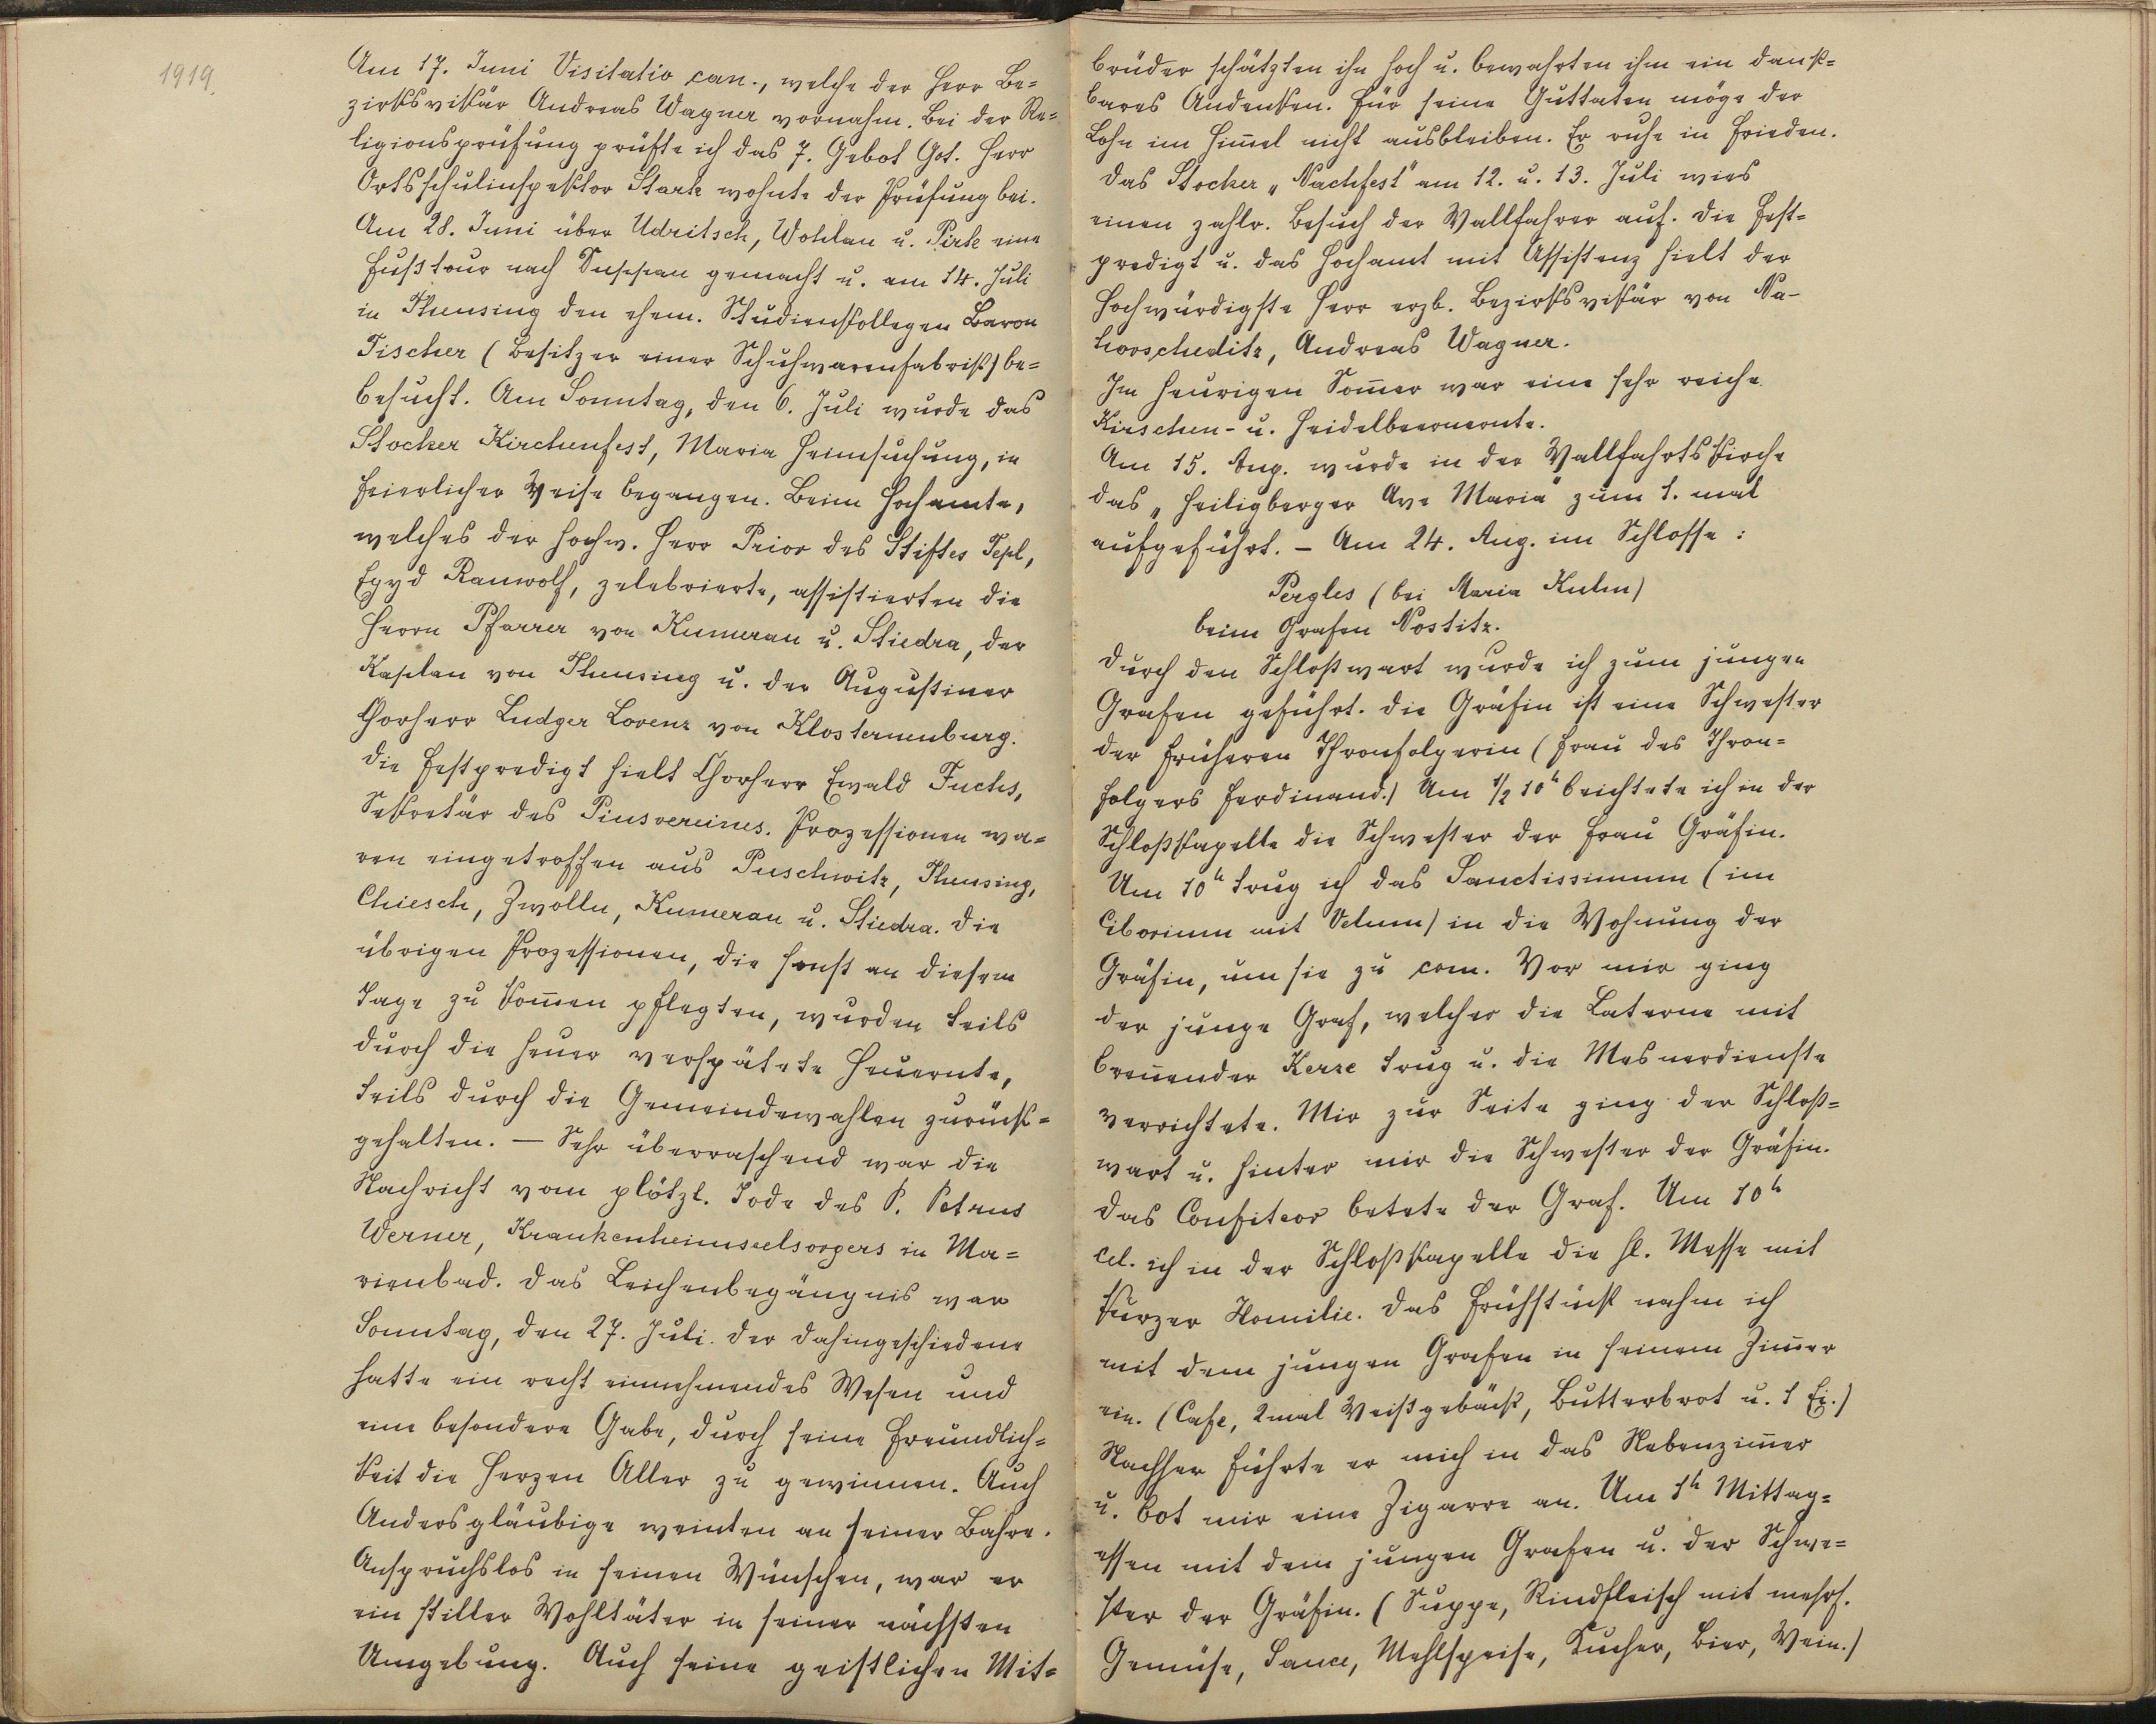 1919.
Am 17. Juni Visitatio can., welche der Herr Be=
zirksvikär Andreas Wagner vornahm. Bei der Re=
ligionsprüfung prüfte ich das 7. Gebot Got. Herr
Ortsschulinspektor Stark wohnte der Prüfung bei.
Am 28. Juni über Udritsch, Wohlau u. Pirk eine
Fußtour nach Duppau gemacht u. am 14. Juli
in Theusing den ehem. Studienkollegen Baron
Fischer (Besitzer einer Schuhwarenfabrik) be=
besucht. Am Sonntag, den 6. Juli wurde das
Stocker Kirchenfest, Maria Heimsuchung, in
feierlicher Weise begangen. Beim Hochamte,
welches der hochw. Herr Prior des Stiftes Tepl,
Egyd Rauwolf, zelebrierte, assistierten die
Herrn Pfarrer von Kumerau u. Stiedra, der
Kaplan von Theusing u. der Augustiner
Chorherr Ludger Lorenz von Klosterneuburg.
Die Festpredigt hielt Chorherr Ewald Fuchs,
Sekretär des Piusvereines. Prozessionen wa=
ren eingetroffen aus Puschwitz, Theusing,
Chiesch, Zwolln, Kumerau u. Stiedra. Die
übrigen Prozessionen, die sonst an diesem
Tage zu kom̅en pflegten, wurden teils
durch die heuer verspätete Heuernte,
teils durch die Gemeindewahlen zurück=
gehalten. — Sehr überraschend war die
Nachricht vom plötzl. Tode des P. Petrus
Werner, Krankenheimseelsorgers in Ma=
rienbad. Das Leichenbegängnis war
Sonntag, den 27. Juli. Der Dahingeschiedene
hatte ein recht einnehmendes Wesen und
eine besondere Gabe, durch seine Freundlich=
keit die Herzen Aller zu gewinnen. Auch
Andersgläubige weinten an seiner Bahre.
Anspruchslos in seinen Wünschen, war er
ein stiller Wohltäter in seiner nächsten
Umgebung. Auch seine geistlichen Mit=
brüder schätzten ihn hoch u. bewahrten ihm ein dank=
bares Andenken. Für seine Guttaten möge der
Lohn im Him̅el nicht ausbleiben. Er ruhe in Frieden.
Das Stocker „Nachfest" am 12. u. 13. Juli wies
einen zahlr. Besuch der Wallfahrer auf. Die Fest=
predigt u. das Hochamt mit Assistenz hielt der
hochwürdigste Herr erzb. Bezirksvikär von Wa-
horscheditz, Andreas Wagner.
Im heurigen Som̅er war eine sehr reiche
Kirschen- u. Heidelbeerernte.
Am 15. Aug. wurde in der Wallfahrtskirche
das „Heiligberger Ave Maria" zum 1. mal
aufgeführt. – Am 24. Aug. im Schlosse:
Pergles (bei Maria Kulm)
beim Grafen Nostitz.
Durch den Schloßwart wurde ich zum jungen
Grafen geführt. Die Gräfin ist eine Schwester
der früheren Thronfolgerin (Frau des Thron=
folgers Ferdinand.) Um ½10h beichtete ich in der
Schloßkapelle die Schwester der Frau Gräfin.
Um 10h trug ich das Sanctissimum (im
Ciborium mit Velum) in die Wohnung der
Gräfin, um sie zu com. Vor mir ging
der junge Graf, welcher die Laterne mit
bren̅ender Kerze trug u. die Mesnerdienste
verrichtete. Mir zur Seite ging der Schloß=
wart u. hinter mir die Schwester der Gräfin.
Das Confiteor betete der Graf. Um 10h
cel. ich in der Schloßkapelle die hl. Messe mit
kurzer Homilie. Das Frühstück nahm ich
mit dem jungen Grafen in seinem Zim̅er
ein. (Cafe, 2mal Weißgebäck, Butterbrot u. 1 Ei.)
Nachher führte er mich in das Nebenzim̅er
u. bot mir eine Zigarre an. Um 1h Mittag=
essen mit dem jungen Grafen u. der Schwe=
ster der Gräfin. (Suppe, Rindfleisch mit mehrf.
Gemüse, Sauce, Mehlspeise, Zucker, Bier, Wein.)